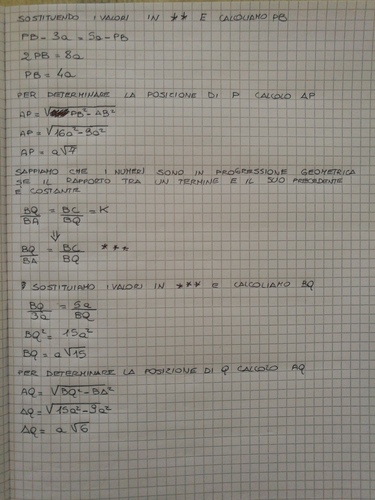 SOSTITUENDO I VALORI IN ** E CALCOLIAMO PB
PB - 3a = 5a - PB
2PB = 8a
PB = 4a
PER DETERMINARE LA POSIZIONE DI P CALCOLO AP
AP = √PB² - AB²
AP = √16a² - 9a²
AP = a√7
SAPPIAMO CHE I NUMERI SONO IN PROGRESSIONE GEOMETRICA
SE IL RAPPORTO TRA UN TERMINE E IL SUO PRECEDENTE
È COSTANTE
BQ/BA = BC/BQ = K
⇓
BQ/BA = BC/BQ ***
SOSTITUIAMO I VALORI IN *** E CALCOLIAMO BQ
BQ/3a = 5a/BQ
BQ² = 15a²
BQ = a√15
PER DETERMINARE LA POSIZIONE DI Q CALCOLO AQ
AQ = √BQ² - BA²
AQ = √15a² - 9a²
AQ = a√6